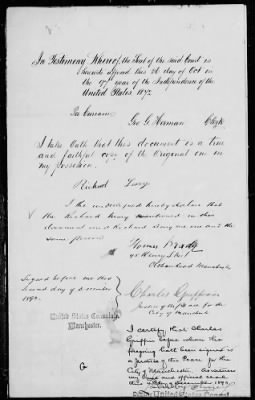 In Testimony Whereof, the Seal of the said Court is
hereunto affixed this 26 day of Oct in
the 117 year of the Independence of the
United States 1892
Per Curiam
Geo. G. Herman Clerk
I take Oath that this document is a true
and faithful copy of the Original one in
my possession.
Richard
I the undersigned hereby declare that
the Richard mentioned in this
document and Richard are one and the
same person
Thomas
Manchester
Signed before me this
second day of December
1892.
Charles Griffin
Justice of the Peace for the
City of Manchester
United States Consulate,
Manchester.
I certify that Charles
Griffin before whom the
foregoing oath been signed is
a Justice of the Peace for the
City of Manchester. Witness
my hand and official seal
this day of December 1892
United States Consul
G